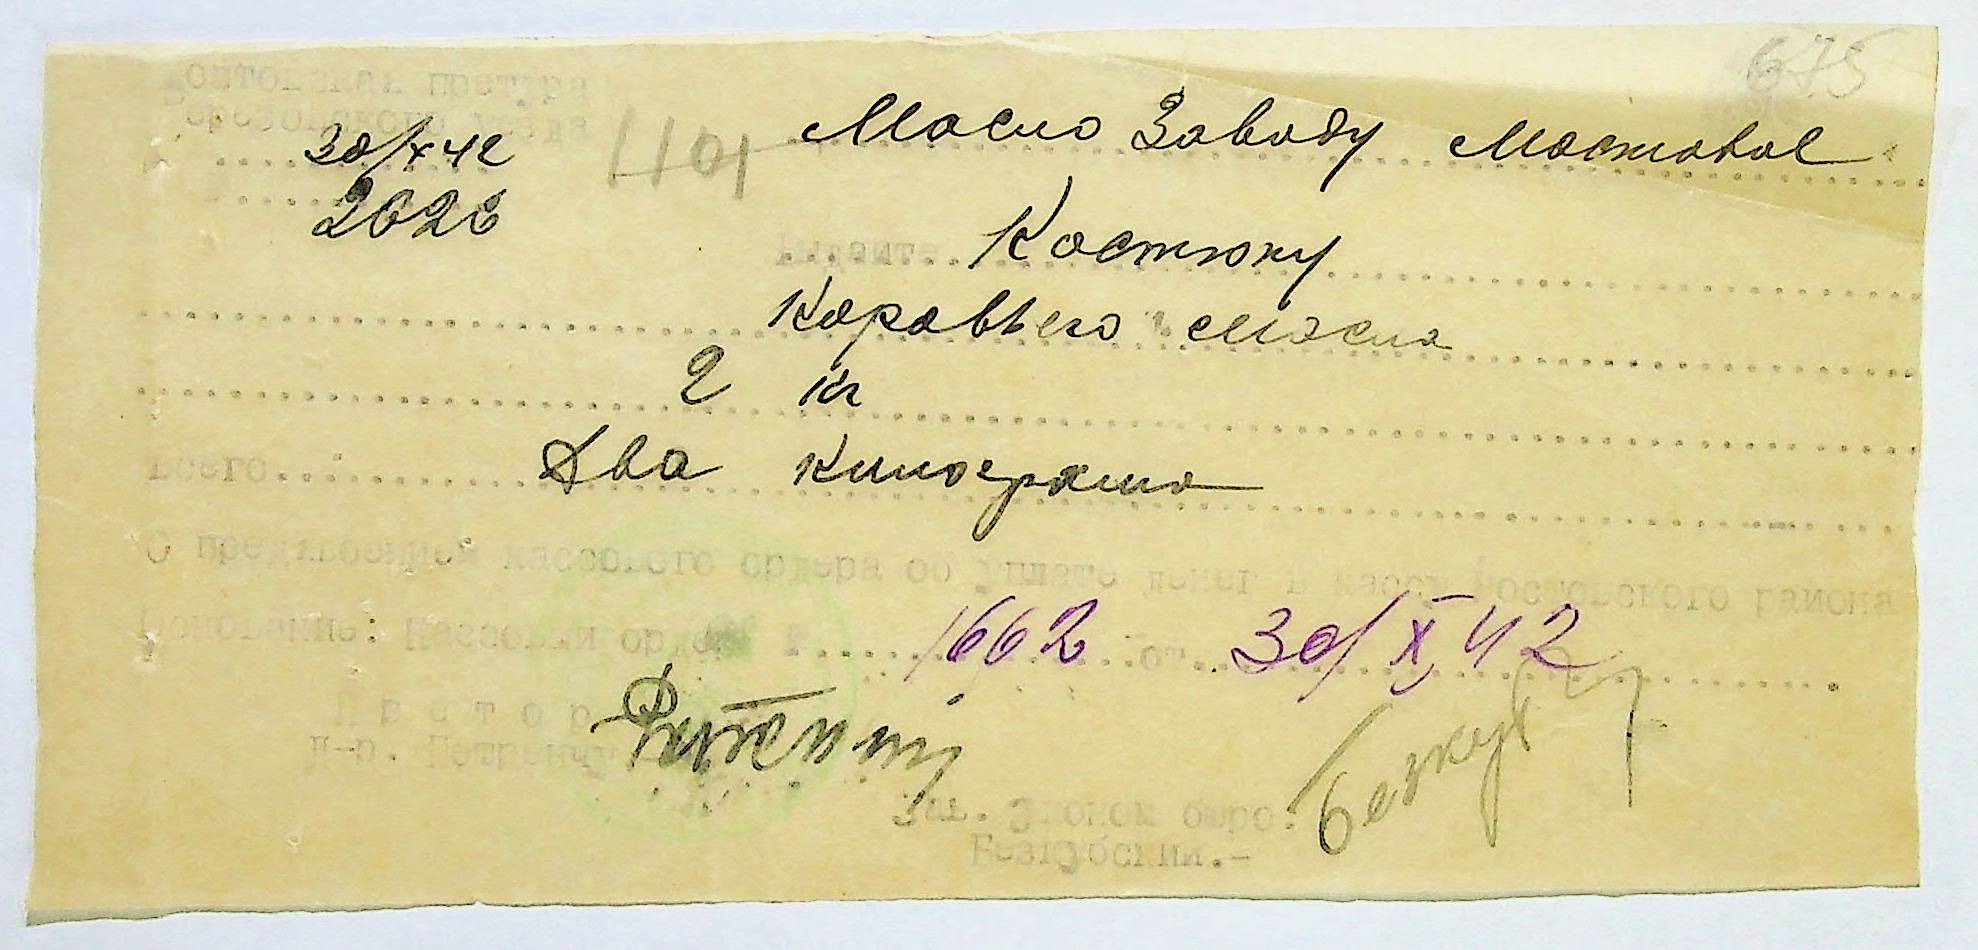 675
Ростовская претура
Березовского уезда
30/X 42
2028
1101
Масло Заводу Мостовое
Выдайте Костюку
Коровьего масла
2 кг
Всего Два килограма
С пред'явлением кассового ордера об уплате денег в кассу Ростовского района
Основание: Кассовый ордер № 1662 от 30/X 42
Претор
Д-р. Петренчу
Зав. Эконом бюро:
Безкубский.-